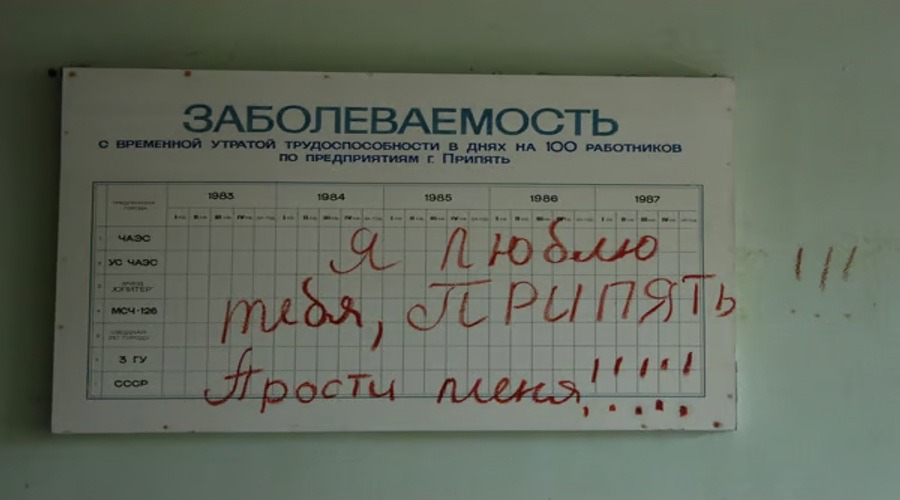 ЗАБОЛЕВАЕМОСТЬ
С ВРЕМЕННОЙ УТРАТОЙ ТРУДОСПОСОБНОСТИ В ДНЯХ НА 100 РАБОТНИКОВ
ПО ПРЕДПРИЯТИЯМ г. Припять
1983 1984 1985 1986 1987
ЧАЭС
УС ЧАЭС
ЮПИТЕР
МСЧ-126
3 ГУ
СССР
Я люблю
тебя, ПРИПЯТЬ !!!
Прости меня!!!!!